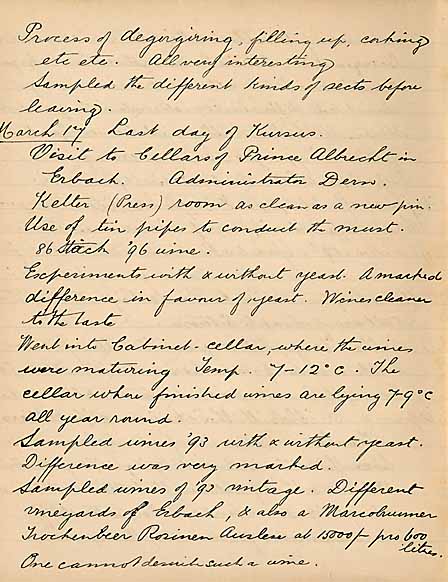 Process of degorgiring, filling up, corking
etc etc. All very interesting
Sampled the different kinds of sects before
leaving.
March 17 Last day of Kursus.
Visit to Cellars of Prince Albrecht in
Erbach. Administrator Dern.
Kelter (Press) room as clean as a new pin.
Use of tin pipes to conduct the must.
86 Stück '96 wine.
Experiments with & without yeast. A marked
difference in favour of yeast. Wines cleaner
to the taste
Went into Cabinet-cellar, where the wines
were maturing Temp. 7-12°C. The
cellar where finished wines are lying 7-9°C
all year round.
Sampled wines '93 with & without yeast.
Difference was very marked.
Sampled wines of 93 vintage. Different
vineyards of Erbach, & also a
Trockenbeer Rosinen Auslese at 15000/- pro 600
litres.
One cannot such a wine.